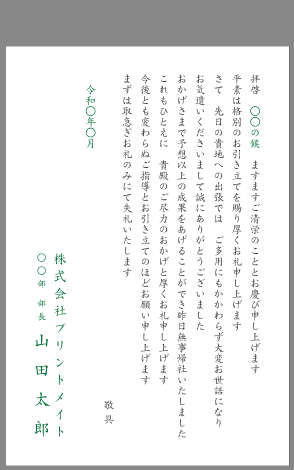 拝啓　〇〇の候　ますますご清栄のこととお慶び申し上げます
平素は格別のお引き立てを賜り厚くお礼申し上げます
さて　先日の貴地への出張では　ご多用にもかかわらず大変お世話になり
お気遣いくださいまして誠にありがとうございました
おかげさまで予想以上の成果をあげることができ昨日無事帰社いたしました
これもひとえに　貴殿のご尽力のおかげと厚くお礼申し上げます
今後とも変わらぬご指導とお引き立てのほどお願い申し上げます
まずは取急ぎお礼のみにて失礼いたします
敬具
令和〇年〇月
株式会社プリントメイト
〇〇部　部長　山田太郎